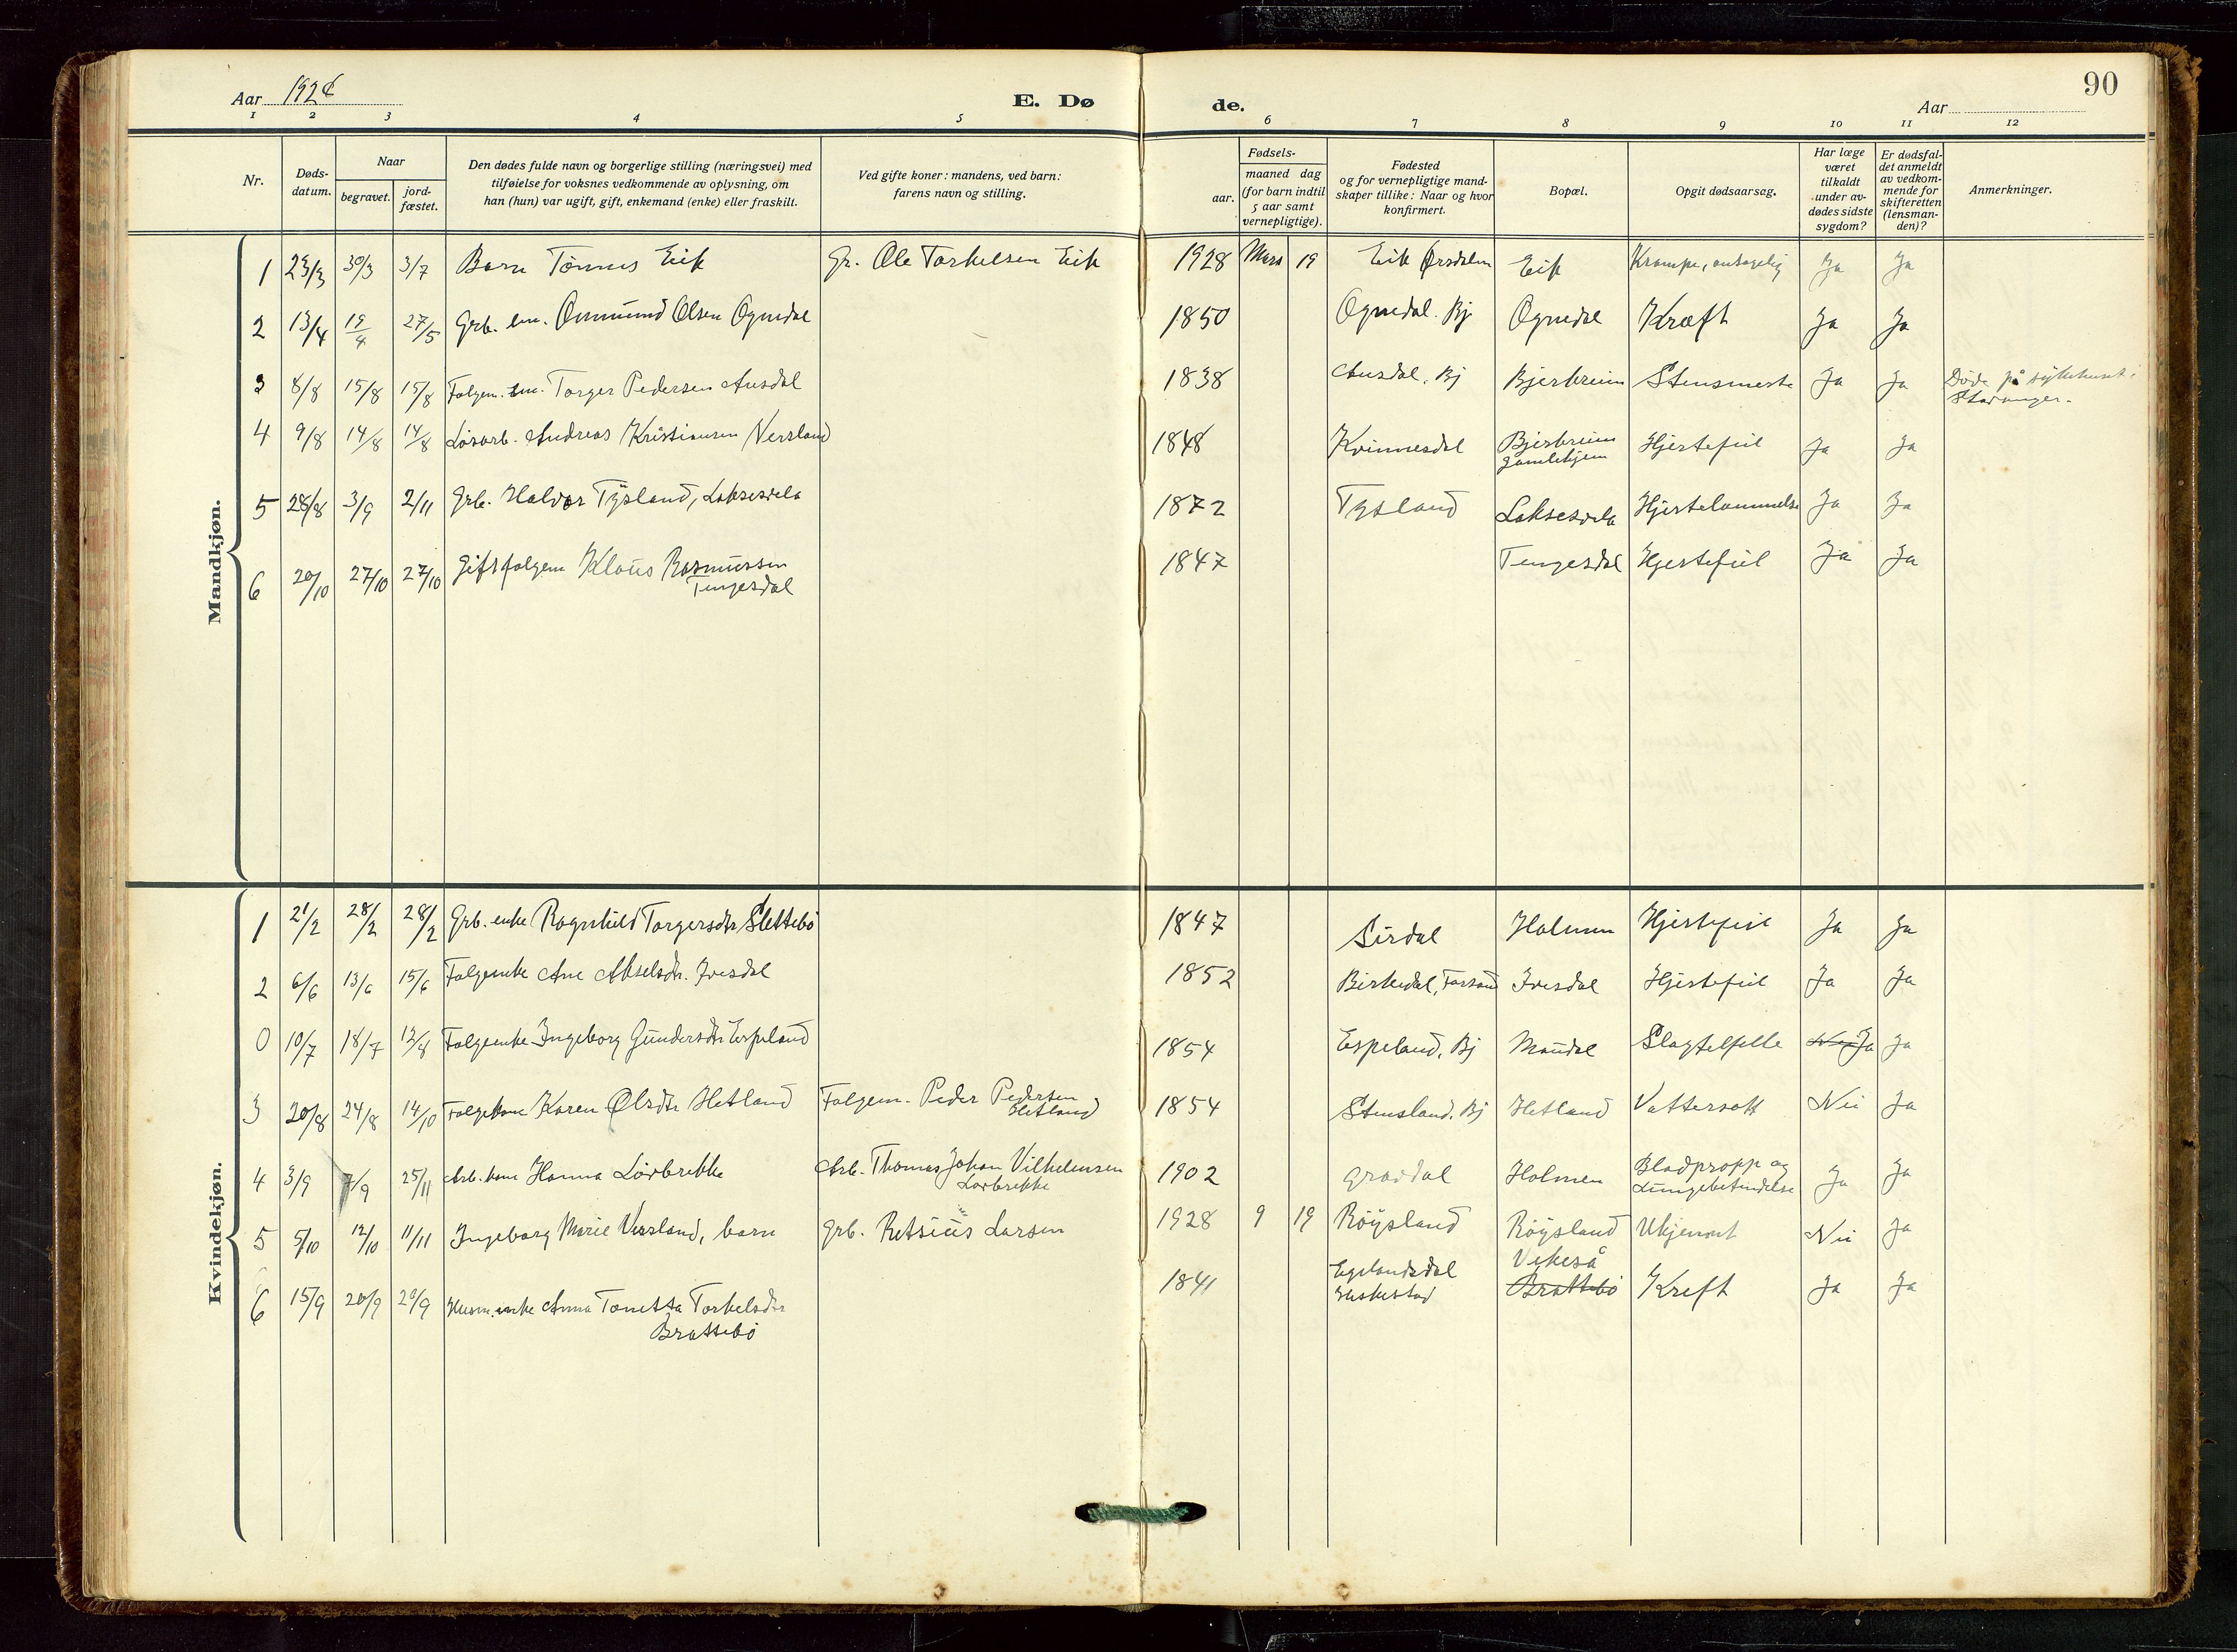 90
Aar 1928 E. Dø de. Aar
1 2 3 4 5 6 7 8 9 10 11 12
Nr.
Døds-datum.
Naar
begravet.
jord-fæstet.
Den dødes fulde navn og borgerlige stilling (næringsvei) med
tilføielse for voksnes vedkommende av oplysning, om
han (hun) var ugift, gift, enkemand (enke) eller fraskilt.
Ved gifte koner: mandens, ved barn:
farens navn og stilling.
Fødsels-
aar.
maaned dag
(for barn indtil
5 aar samt
vernepligtige).
Fødested
og for vernepligtige mand-
skaper tillike: Naar og hvor
konfirmert.
Bopæl.
Opgit dødsaarsag.
Har læge
været
tilkaldt
under av-
dødes sidste
sygdom?
Er dødsfal-
det anmeldt
av vedkom-
mende for
skifteretten
(lensman-
den)?
Anmerkninger.
Mandkjøn.
1 23/3 30/3 3/7 Barn Tönnes Eik Gr. Ole Torkelsen Eik 1928 Mars 19 Eik Ørsdalen Eik Krampe, antagelig Ja Ja
2 13/4 19/4 27/5 Grb. em. Ommund Olsen Ognedal 1850 Ognedal. Bj Ognedal Kræft Ja Ja
3 8/8 15/8 15/8 Folgem. em. Torger Pedersen Ausdal 1838 Ausdal, Bj Bjerkreim Stensmerte Ja Ja Döde på sykehuset i
Stavanger.
4 9/8 14/8 14/8 Lösarb. Andreas Kristiansen Versland 1848 Kvinnesdal Bjerkreim
gamlehjem Hjertefeil Ja Ja
5 28/8 3/9 2/11 Grb. Halvor Tysland, Laksesvela 1872 Tysland Laksesvela Hjertelammelse Ja Ja
6 20/10 27/10 27/10 Gift folgem Klaus Rasmussen
Tengesdal 1847 Tengesdal Hjertefeil Ja Ja
Kvindekjøn.
1 21/2 28/2 28/2 Grb. enke Ragnhild Torgersdtr Slettebö 1847 Sirdal Holmen Hjertefeil Ja Ja
2 6/6 13/6 15/6 Folgeenke Ane Akselsdtr. Ivesdal 1852 Birkedal, Forsand Ivesdal Hjertefeil Ja Ja
0 10/7 18/7 12/8 Folgeenke Ingeborg Gundersdtr Espeland 1854 Espeland, Bj Maudal Slagtilfelle Nei Ja Ja
3 20/8 24/8 14/10 Folgekone Karen Olsdtr Hetland Folgem. Peder Pedersen
Hetland 1854 Stensland. Bj Hetland Vattersott Nei Ja
4 3/9 7/9 25/11 Arb. kone Hanna Lövbrekke Arb. Thomas Johan Vilhelmsen
Lövbrekke 1902 Gravdal Holmen Blodpropp og
Lungebetendelse Ja Ja
5 5/10 12/10 11/11 Ingeborg Marie Versland, barn Grb. Retsius Larsen 1928 9 19 Röysland Röysland Ukjennt Nei Ja
6 15/9 20/9 20/9 Husm. enke Anna Tonetta Torkelsdtr
Brattebö 1841 Egelandsdal
Heskestad Vikeså
Brattebö Kreft Ja Ja